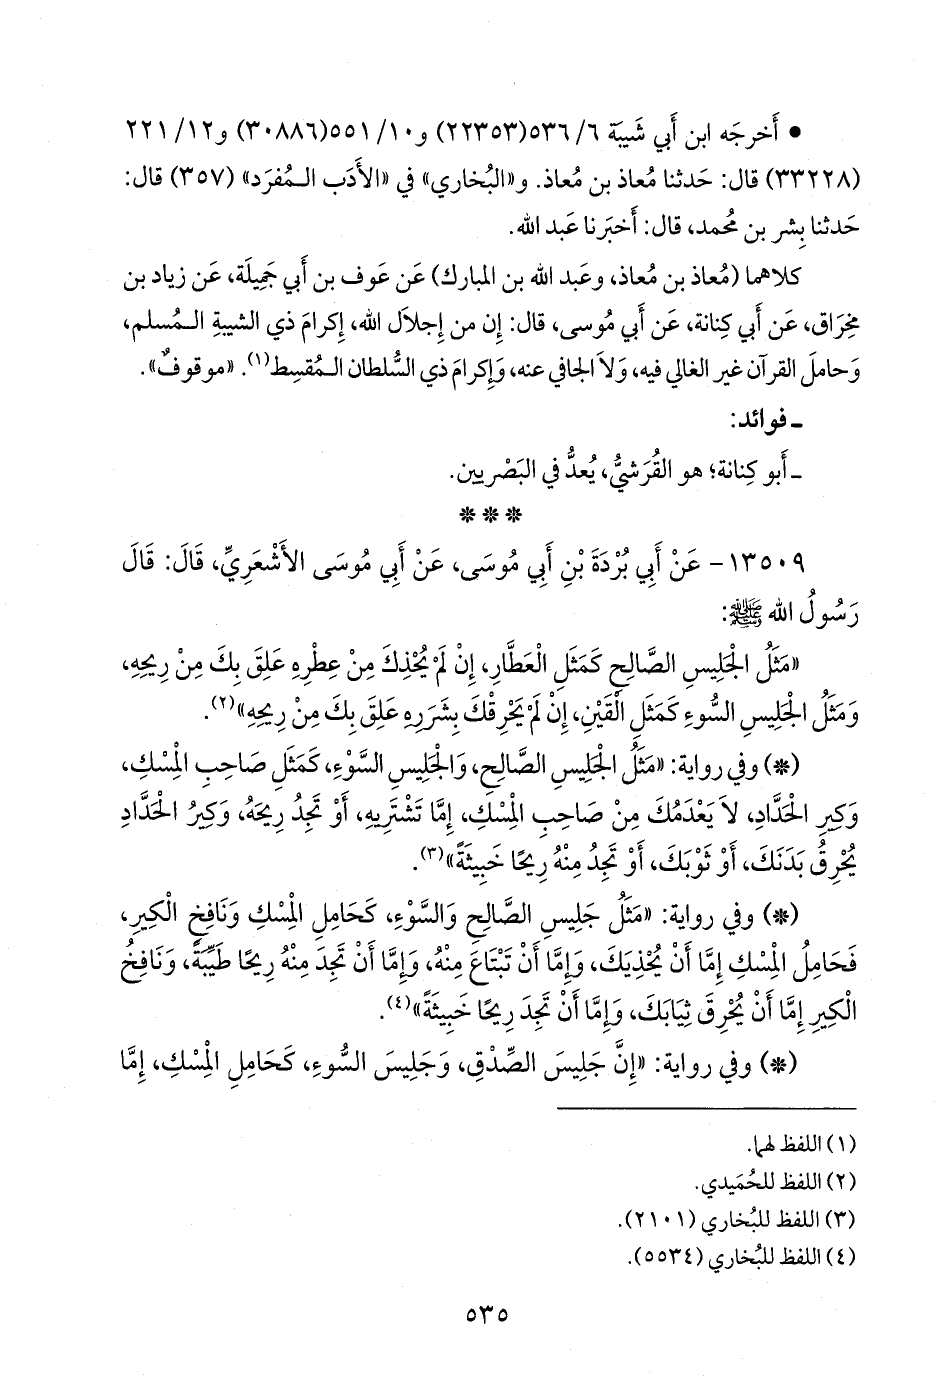 • أَخرجَه ابن أَبي شَيبَة ٦/ ٥٣٦(٢٢٣٥٣) و١٠/ ٥٥١(٣٠٨٨٦) و١٢/ ٢٢١
(٣٣٢٢٨) قال: حَدثنا مُعاذ بن مُعاذ. و«البُخاري» في «الأَدَب الـمُفرَد» (٣٥٧) قال:
حَدثنا بِشر بن مُحمد، قال: أَخبَرنا عَبد الله.
كلاهما (مُعاذ بن مُعاذ، وعَبد الله بن المبارك) عَن عَوف بن أَبي جَمِيلَة، عَن زياد بن
مِخراق، عَن أَبي كِنانة، عَن أَبي مُوسى، قال: إِن من إِجلاَل الله، إِكرامَ ذي الشيبةِ الـمُسلم،
وَحاملَ القرآن غير الغالي فيه، وَلاَ الجافي عنه، وَإِكرامَ ذي السُّلطان الـمُقسِط(١). «موقوفٌ».
ـ فوائد:
ـ أَبو كِنانة؛ هو القُرَشيُّ، يُعدُّ في البَصْريين.
* * *
١٣٥٠٩- عَنْ أَبِي بُرْدَةَ بْنِ أَبِي مُوسَى، عَنْ أَبِي مُوسَى الأَشْعَرِيِّ، قَالَ: قَالَ
رَسُولُ الله ﷺ:
«مَثَلُ الْجَلِيسِ الصَّالِحِ كَمَثَلِ الْعَطَّارِ، إِنْ لَمْ يُحْذِكَ مِنْ عِطْرِهِ عَلِقَ بِكَ مِنْ رِيحِهِ،
وَمَثَلُ الْجَلِيسِ السُّوءِ كَمَثَلِ الْقَيْنِ، إِنْ لَمْ يَحْرِقْكَ بِشَرَرِهِ عَلِقَ بِكَ مِنْ رِيحِهِ»(٢).
(*) وفي رواية: «مَثَلُ الْجَلِيسِ الصَّالِحِ، وَالْجَلِيسِ السَّوْءِ، كَمَثَلِ صَاحِبِ الْمِسْكِ،
وَكِيرِ الْحَدَّادِ، لاَ يَعْدَمُكَ مِنْ صَاحِبِ الْمِسْكِ، إِمَّا تَشْتَرِيهِ، أَوْ تَجِدُ رِيحَهُ، وَكِيرُ الْحَدَّادِ
يُحْرِقُ بَدَنَكَ، أَوْ ثَوْبَكَ، أَوْ تَجِدُ مِنْهُ رِيحًا خَبِيثَةً»(٣).
(*) وفي رواية: «مَثَلُ جَلِيسِ الصَّالِحِ وَالسَّوْءِ، كَحَامِلِ الْمِسْكِ وَنَافِخِ الْكِيرِ،
فَحَامِلُ الْمِسْكِ إِمَّا أَنْ يُحْذِيَكَ، وَإِمَّا أَنْ تَبْتَاعَ مِنْهُ، وَإِمَّا أَنْ تَجِدَ مِنْهُ رِيحًا طَيِّبَةً، وَنَافِخُ
الْكِيرِ إِمَّا أَنْ يُحْرِقَ ثِيَابَكَ، وَإِمَّا أَنْ تَجِدَ رِيحًا خَبِيثَةً»(٤).
(*) وفي رواية: «إِنَّ جَلِيسَ الصِّدْقِ، وَجَلِيسَ السُّوءِ، كَحَامِلِ الْمِسْكِ، إِمَّا
(١) اللفظ لهما.
(٢) اللفظ للحُمَيدي.
(٣) اللفظ للبُخاري (٢١٠١).
(٤) اللفظ للبُخاري (٥٥٣٤).
٥٣٥